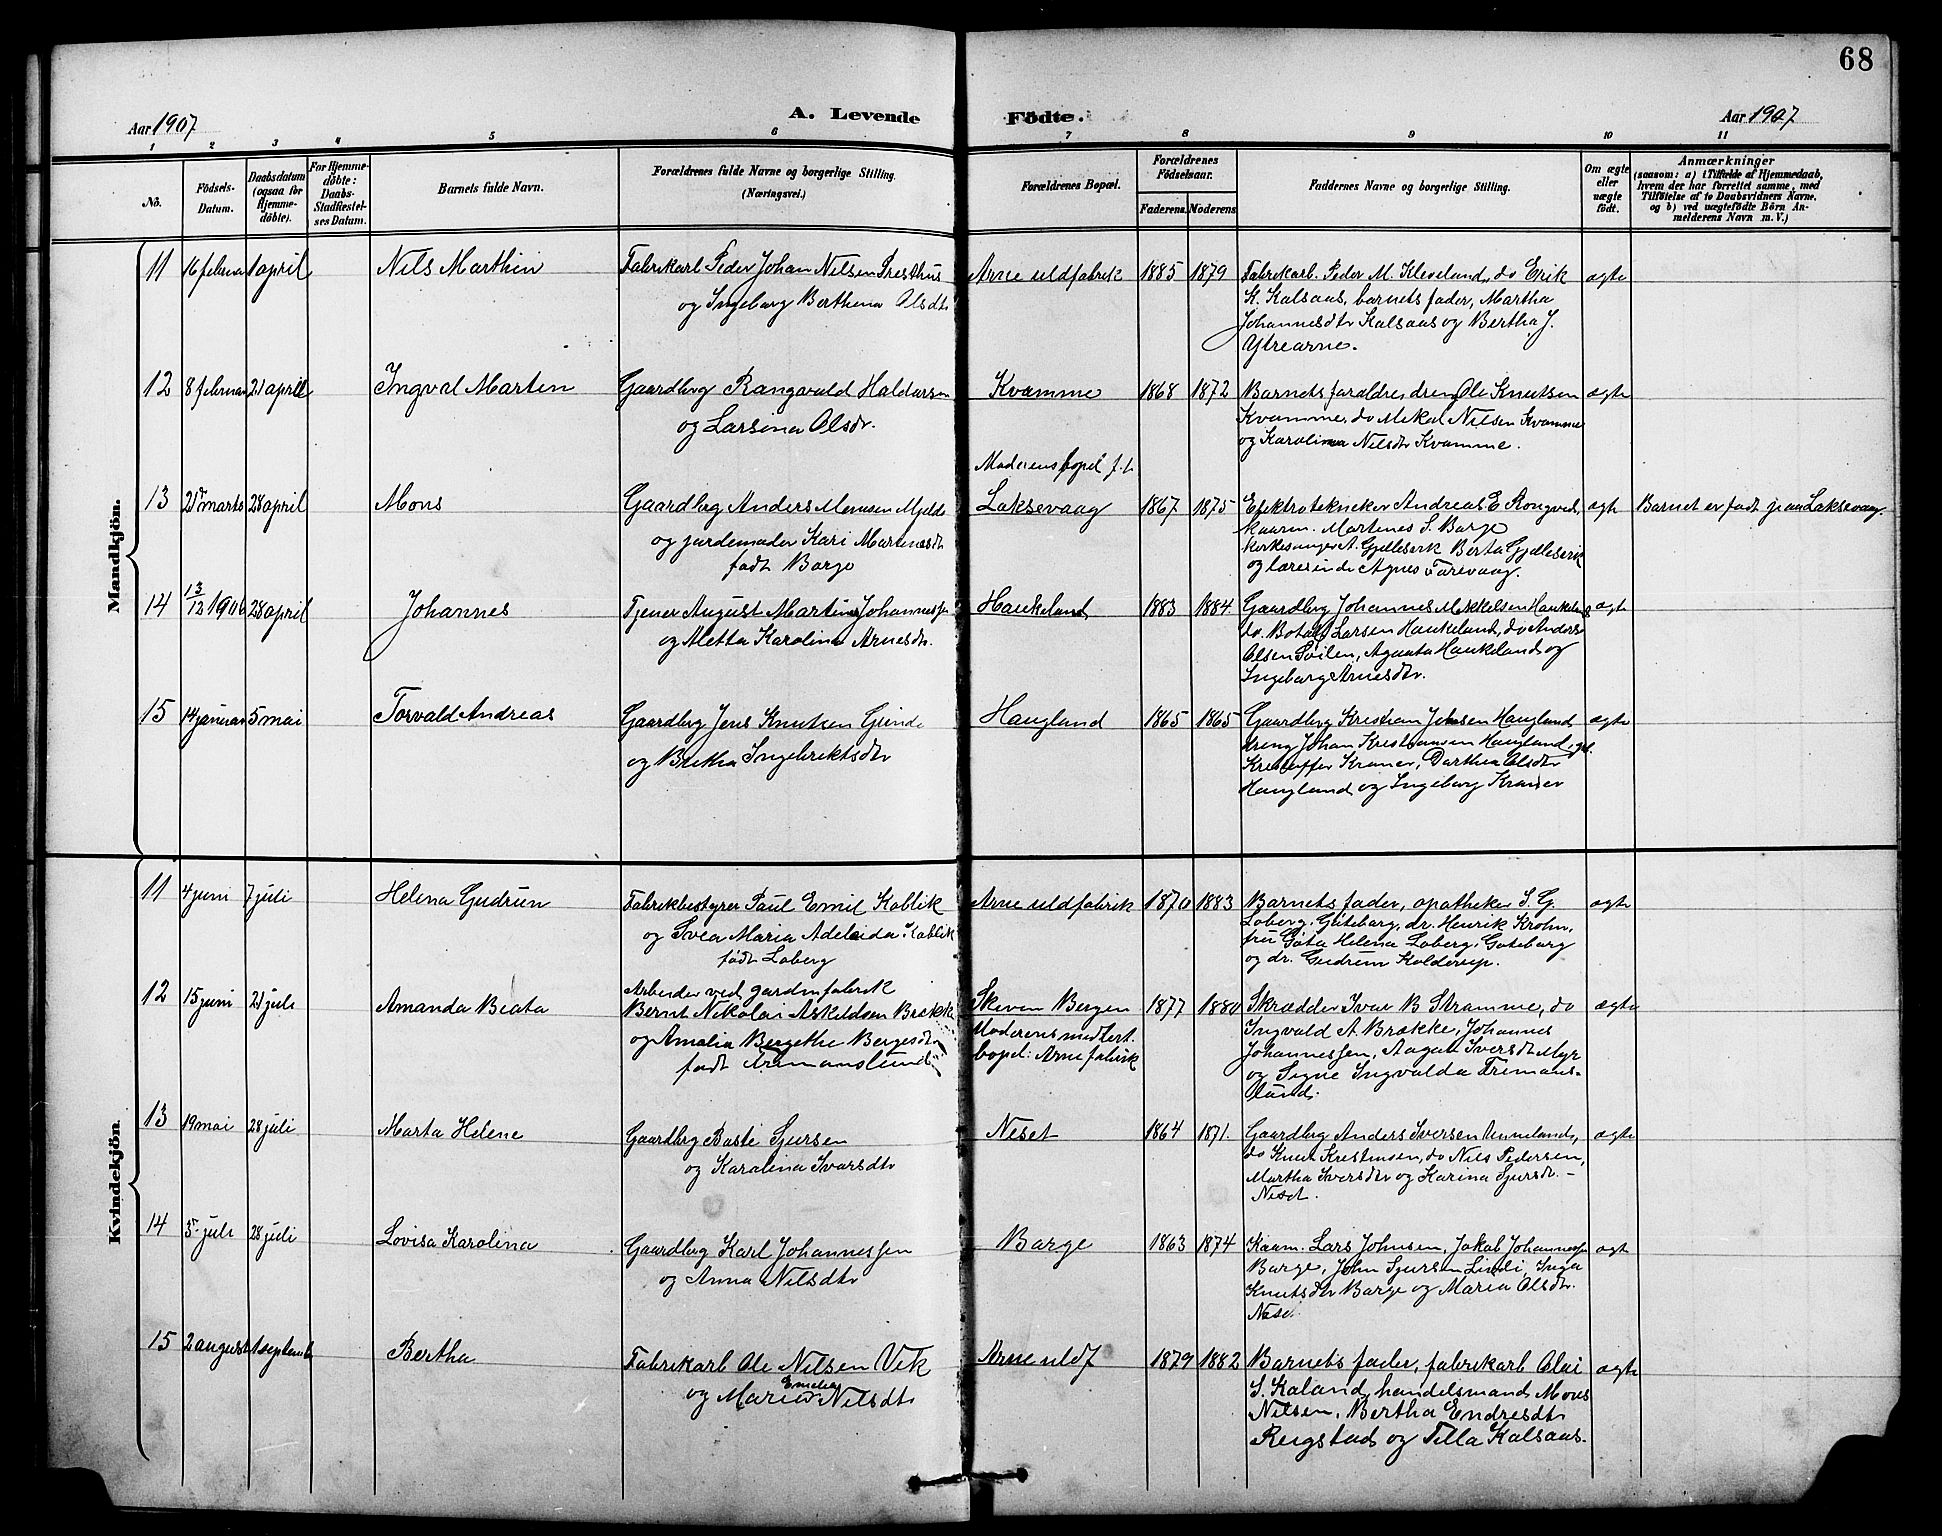 68
Aar 1907
A. Levende Födte.
Aar 1907
1 2 3 4 5 6 7 8 9 10 11
No.
Födsels-Datum.
Daabsdatum (ogsaa for Hjemme-döbte).
For Hjemme-döbte: Daabs-Stadfæstel-ses Datum.
Barnets fulde Navn.
Forældrenes fulde Navne og borgerlige Stilling. (Næringsvei.)
Forældrenes Bopæl.
Forældrenes Födselsaar.
Faderens. Moderens
Faddernes Navne og borgerlige Stilling.
Om ægte eller uægte födt.
Anmærkninger
(saasom: a) i Tilfælde af Hjemmedaab,
hvem der har forrettet samme, med
Tilföielse af to Daabsvidners Navne,
og b) ved uægtefödte Börn An-
melderens Navn m. V.)
Mandkjön.
11 16 februar 1 april Nils Marthin Fabrikarb Peder Johan Nilsen Presthus Arne uldfabrik 1885 1879 Fabrikarb. Peder M. Kleveland, do Erik ægte
og Ingeborg Berthena Olsdtr K. Kalsaas, barnets fader, Martha
Johannesdtr Kalsaas og Bertha J.
Ytrearne.
12 8 februar 21 april Ingval Marten Gaardbrg Rangvald Haldorsen Kvamme 1868 1872 Barnets forældre, dreng Ole Knutsen ægte
og Larsena Olsdr. Kvamme, do Mikal Nilsen Kvamme
og Karolina Nilsdtr Kvamme.
Moderens bopel f. t.
13 21 marts 28 april Mons Gaardbrg Anders Monsen Mjelde Laksevaag 1867 1875 Elektrotekniker Andreas E Rongved, ægte Barnet er født paa Laksevaag.
og jordemoder Kari Martinesdt kaarm. Martines S. Borge
født Borge kirkesanger A. Gjelleserk Berta Gjelleserk
og lærerinde Agnes Torevaag.
14 13/12 1906 28 april Johannes Tjener August Martin Johannessen Haukeland 1883 1884 Gaardbrg Johannes Mikkelsen Haukeland ægte
og Metta Karolina Arnesdtr. do. Botolf Larsen Haukeland, do Anders
Olsen Søilen, Agaata Haukeland og
Ingeborg Arnesdtr.
15 14 januar 5 mai Torvald Andreas Gaardbrg Jens Knutsen Grinde Haugland 1865 1865 Gaardbrg Kristian Johnsen Haugland ægte
og Britha Ingebriktsdtr dreng Johan Kristiansen Haugland, gt.
Kristoffer Kramer, Dorthea Olsdtr
Haugland og Ingeborg Kramer
Kvindekjön.
11 4 juni 7 juli Helena Gudrun Fabrikbestyrer Paul Emil Kablik Arne uldfabrik 1870 1883 Barnets fader, apotheker S. G. ægte
og Svea Maria Adelaida Kablik Loberg, Göteborg, dr. Henrik Krohn,
født Loberg fru Göta Helena Loberg, Goteborg
og dr. Gudrun Kolderup.
12 15 juni 21 juli Amanda Beata Arbeider ved gardinfabrik Skiven Bergen 1877 1880 Skrædder Ivar B Stramme, do ægte
Bernt Nikolai Askildsen Brække Moderens midlert. Ingvald A. Brække, Johannes
og Amalia Bergethe Bergesdtr bopel: Arne fabrik Johannessen, Aagate Iversdt Myr
født Tremanslund og Signe Ingvalda Tremans-
lund.
13 19 mai 28 juli Marta Helene Gaardbrg Baste Sjursen Neset 1864 1871. Gaardbrg Anders Iversen Unneland, ægte
og Karolina Ivarsdtr do Knut Kristensen, do Nils Pedersen,
Martha Iversdtr og Karina Sjursdr. -
Neset.
14 5 juli 28 juli Lovisa Karolina Gaardbrg Karl Johannessen Borge 1863 1874 Kaarm. Lars Johnsen, Jakob Johannessen ægte
og Anna Nilsdtr Borge, John Sjursen Lindi, Inga
Knutsdtr Borge og Maria Olsdtr.
Nese
15 2 august 1 septemb Bertha Fabrikarb Ole Nilsen Vik Arne uldf 1879 1882 Barnets fader, fabrikarb Olai ægte
og Maria Emelia Nilsdtr S. Kaland, handelsmand Mons
Nilsen, Bertha Endresdtr
Reigstad og Tilla Kalsaas.